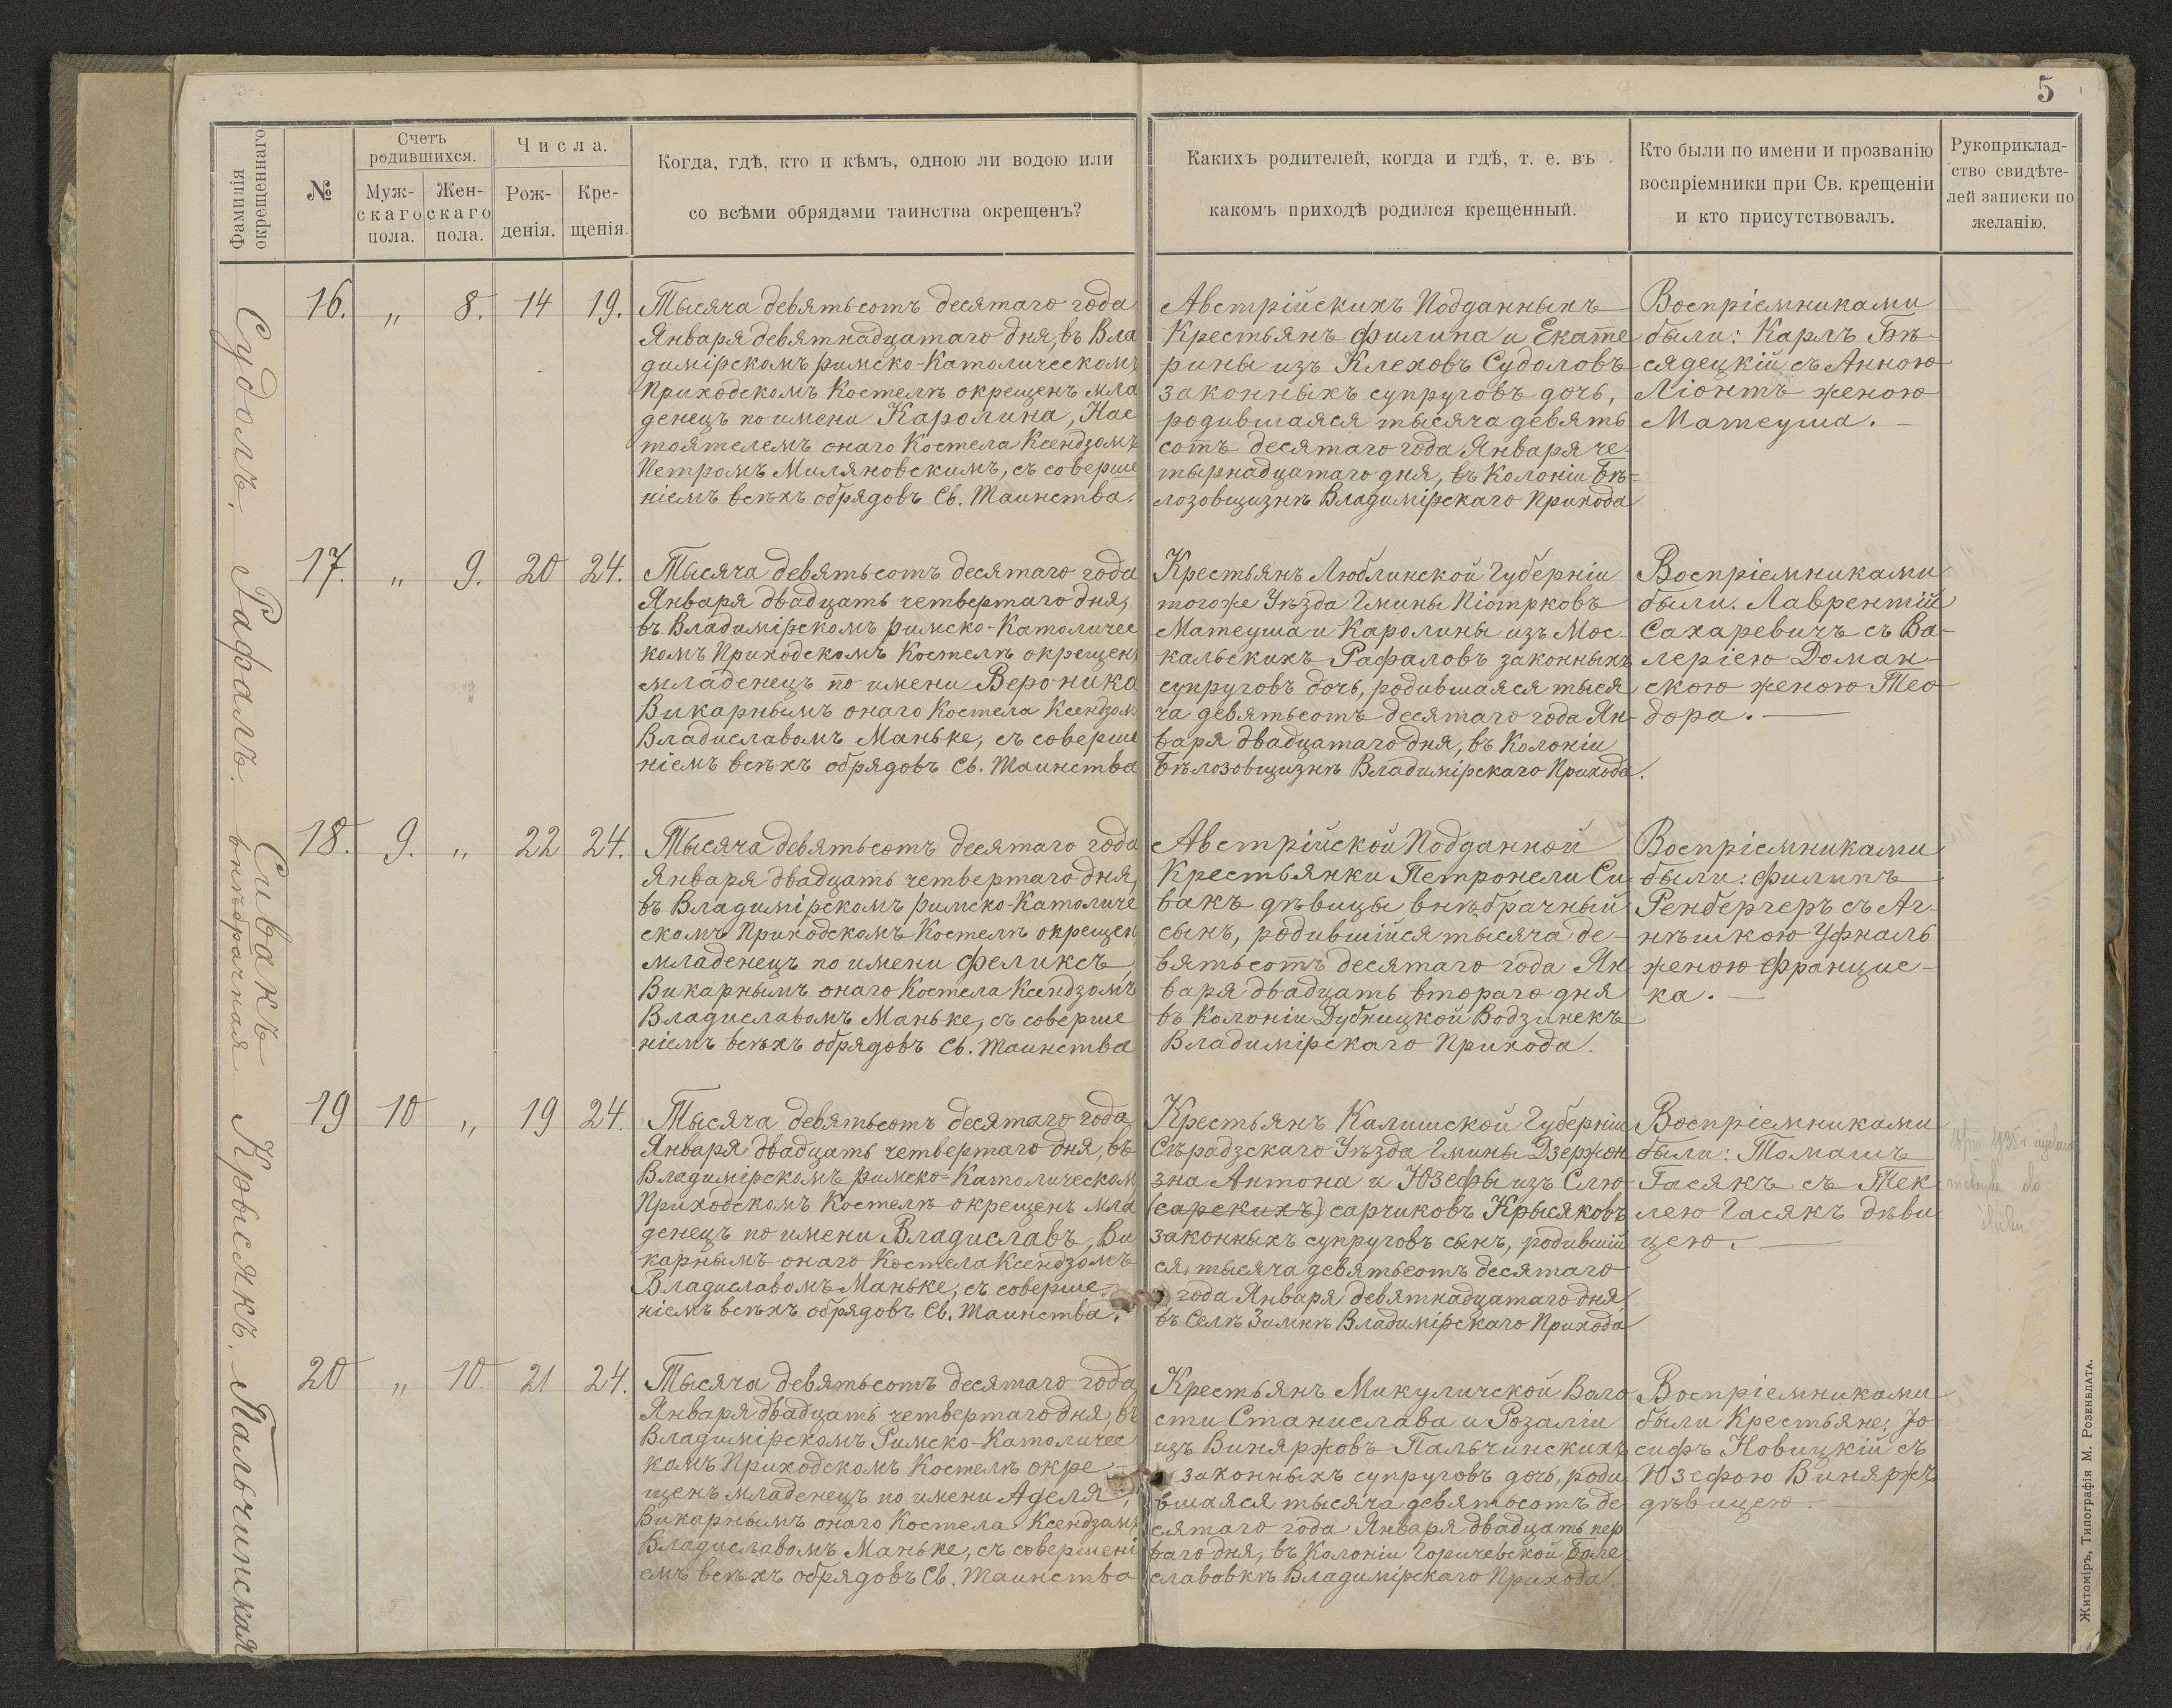 5
Фамилія окрещеннаго
№
Счетъ родившихся.
Муж-
скаго
пола.
Жен-
скаго
пола.
Числа.
Рож-
денія.
Кре-
щенія.
Когда, гдѣ, кто и кѣмъ, одною ли водою или
со всѣми обрядами таинства окрещенъ?
Какихъ родителей, когда и гдѣ, т. е. въ
какомъ приходѣ родился крещенный.
Кто были по имени и прозванію
воспріемники при Св. крещеніи
и кто присутствовалъ.
Рукоприклад-
ство свидѣте-
лей записки по
желанію.
Судолъ.
16. „ 8. 14 19.
Тысяча девятьсотъ десятаго года
Января девятнадцатаго дня, въ Вла
димірскомъ римско-Католическомъ
Приходскомъ Костелѣ окрещенъ мла
денецъ по имени Каролина, Нас
тоятелемъ онаго Костела Ксендзомъ
Петромъ Миляновскимъ, съ соверше
ніемъ всѣхъ обрядовъ Св. Таинства.
Австрійскихъ Подданныхъ
Крестьянъ Филипа и Екате
рины изъ Клеховъ Судоловъ
законныхъ супруговъ дочь,
родившаяся тысяча девять
сотъ десятаго года Января че-
тырнадцатаго дня, въ Колоніи Бѣ-
лозовщизнѣ Владимірскаго Прихода
Воспріемниками
были: Карлъ Бѣ-
сядецкій съ Анною
Ліонтъ женою
Матеуша. —
Рафалъ.
17. „ 9. 20 24.
Тысяча девятьсотъ десятаго года
Января двадцать четвертаго дня,
въ Владимірскомъ римско-Католичес
комъ Приходскомъ Костелѣ окрещенъ
младенецъ по имени Вероника
Викарнымъ онаго Костела Ксендзом
Владиславомъ Маньке, съ соверше
ніемъ всѣхъ обрядовъ Св. Таинства
Крестьянъ Люблинской Губерніи
тогоже Уѣзда Гмины Піотрковъ
Матеуша и Каролины изъ Мос-
кальскихъ Рафаловъ законныхъ
супруговъ дочь, родившаяся тыся
ча девятьсотъ десятаго года Ян-
варя двадцатаго дня, въ Колоніи
Бѣлозовщизнѣ Владимірскаго Прихода.
Воспріемниками
были. Лаврентій
Сахаревичъ съ Ва-
леріею Доман-
скою женою Тео
дора. —
Сивакъ
внѣбрачная
18. 9. „ 22 24.
Тысяча девятьсотъ десятаго года
Января двадцать четвертаго дня,
въ Владимірскомъ римско-Католиче
скомъ Приходскомъ Костелѣ окрещен
младенецъ по имени Феликсъ,
Викарнымъ онаго Костела Ксендзомъ
Владиславомъ Маньке, съ соверше
ніемъ всѣхъ обрядовъ Св. Таинства
Австрійской Подданной
Крестьянки Петронели Си
вакъ дѣвицы внѣбрачный
сынъ, родившійся тысяча де-
вятьсотъ десятаго года Ян
варя двадцать втораго дня
въ Колоніи Дубницкой Водзинекъ
Владимірскаго Прихода.
Воспріемниками
были: Филипъ
Ренбергеръ съ Аг-
нѣшкою Уфналь
женою Францис-
ка. —
Крысякъ.
19 10 „ 19 24.
Тысяча девятьсотъ десятаго года
Января двадцать четвертаго дня, въ
Владимірскомъ римско-Католическом
Приходскомъ Костелѣ окрещенъ мла
денецъ по имени Владиславъ, Ви
карнымъ онаго Костела Ксендзомъ
Владиславомъ Маньке, съ соверше-
ніемъ всѣхъ обрядовъ Св. Таинства.
Крестьянъ Калишской Губерніи
Сѣрадзскаго Уѣзда Гмины Дзержон
зна Антона и Юзефы изъ Слю
(сарскихъ) сарчиковъ Крысяковъ
законныхъ супруговъ сынъ, родившій
ся, тысяча девятьсотъ десятаго
года Января девятнадцатаго дня
въ Селѣ Зимнѣ Владимірскаго Прихода
Воспріемниками
были: Томашъ
Гасякъ съ Тек
лею Гасякъ дѣви
цею. —
1935 r
Пальчинская
20 „ 10. 21 24.
Тысяча девятьсотъ десятаго года
Января двадцать четвертаго дня, въ
Владимірскомъ Римско-Католичес
комъ Приходскомъ Костелѣ окре-
щенъ младенецъ по имени Аделя,
Викарнымъ онаго Костела Ксендзомъ
Владиславомъ Маньке, съ совершені
емъ всѣхъ обрядовъ Св. Таинства
Крестьянъ Микуличской Воло
сти Станислава и Розаліи
изъ Виняржовъ Пальчинскихъ
законныхъ супруговъ дочь, роди
вшаяся тысяча девятьсотъ де
сятаго года Января двадцать пер
ваго дня, въ Колоніи Горичевской Боле
славовкѣ Владимірскаго Прихода.
Воспріемниками
были Крестьяне: Іо
сифъ Новицкій съ
Юзефою Виняржъ
дѣвицею. —
Житоміръ, Типографія М. Розенблата.